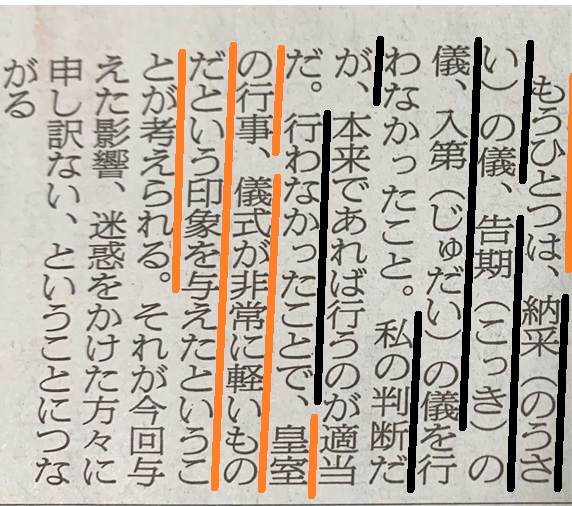 もうひとつは、納采（のうさ
い）の儀、告期（こっき）の
儀、入第（じゅだい）の儀を行
わなかったこと。私の判断だ
が、本来であれば行うのが適当
だ。行わなかったことで、皇室
の行事、儀式が非常に軽いもの
だという印象を与えたというこ
とが考えられる。それが今回与
えた影響、迷惑をかけた方々に
申し訳ない、ということにつな
がる